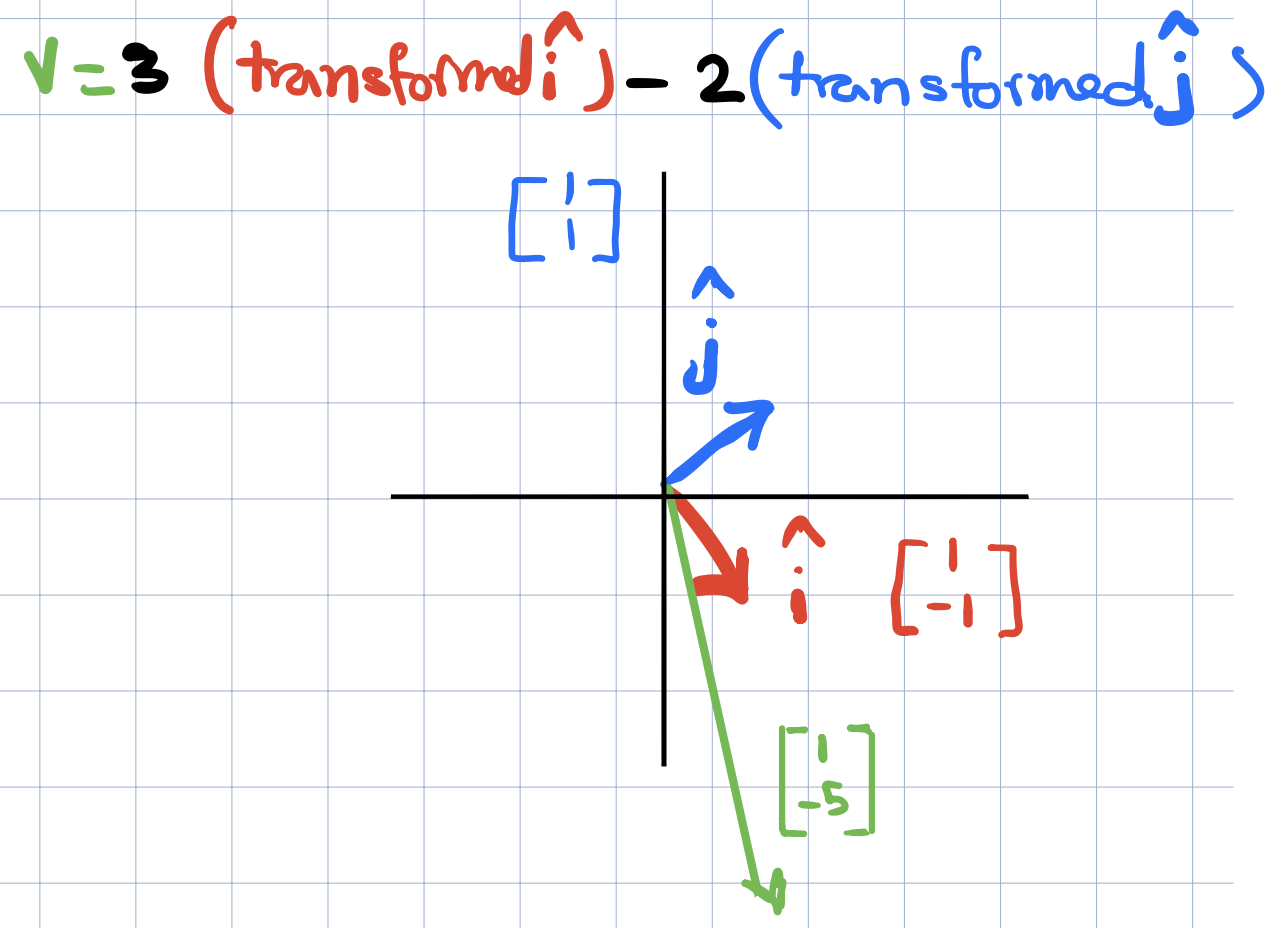 V = 3 (transformed î) - 2 (transformed ĵ)
[1
1]
ĵ
î
[1
-1]
[1
-5]